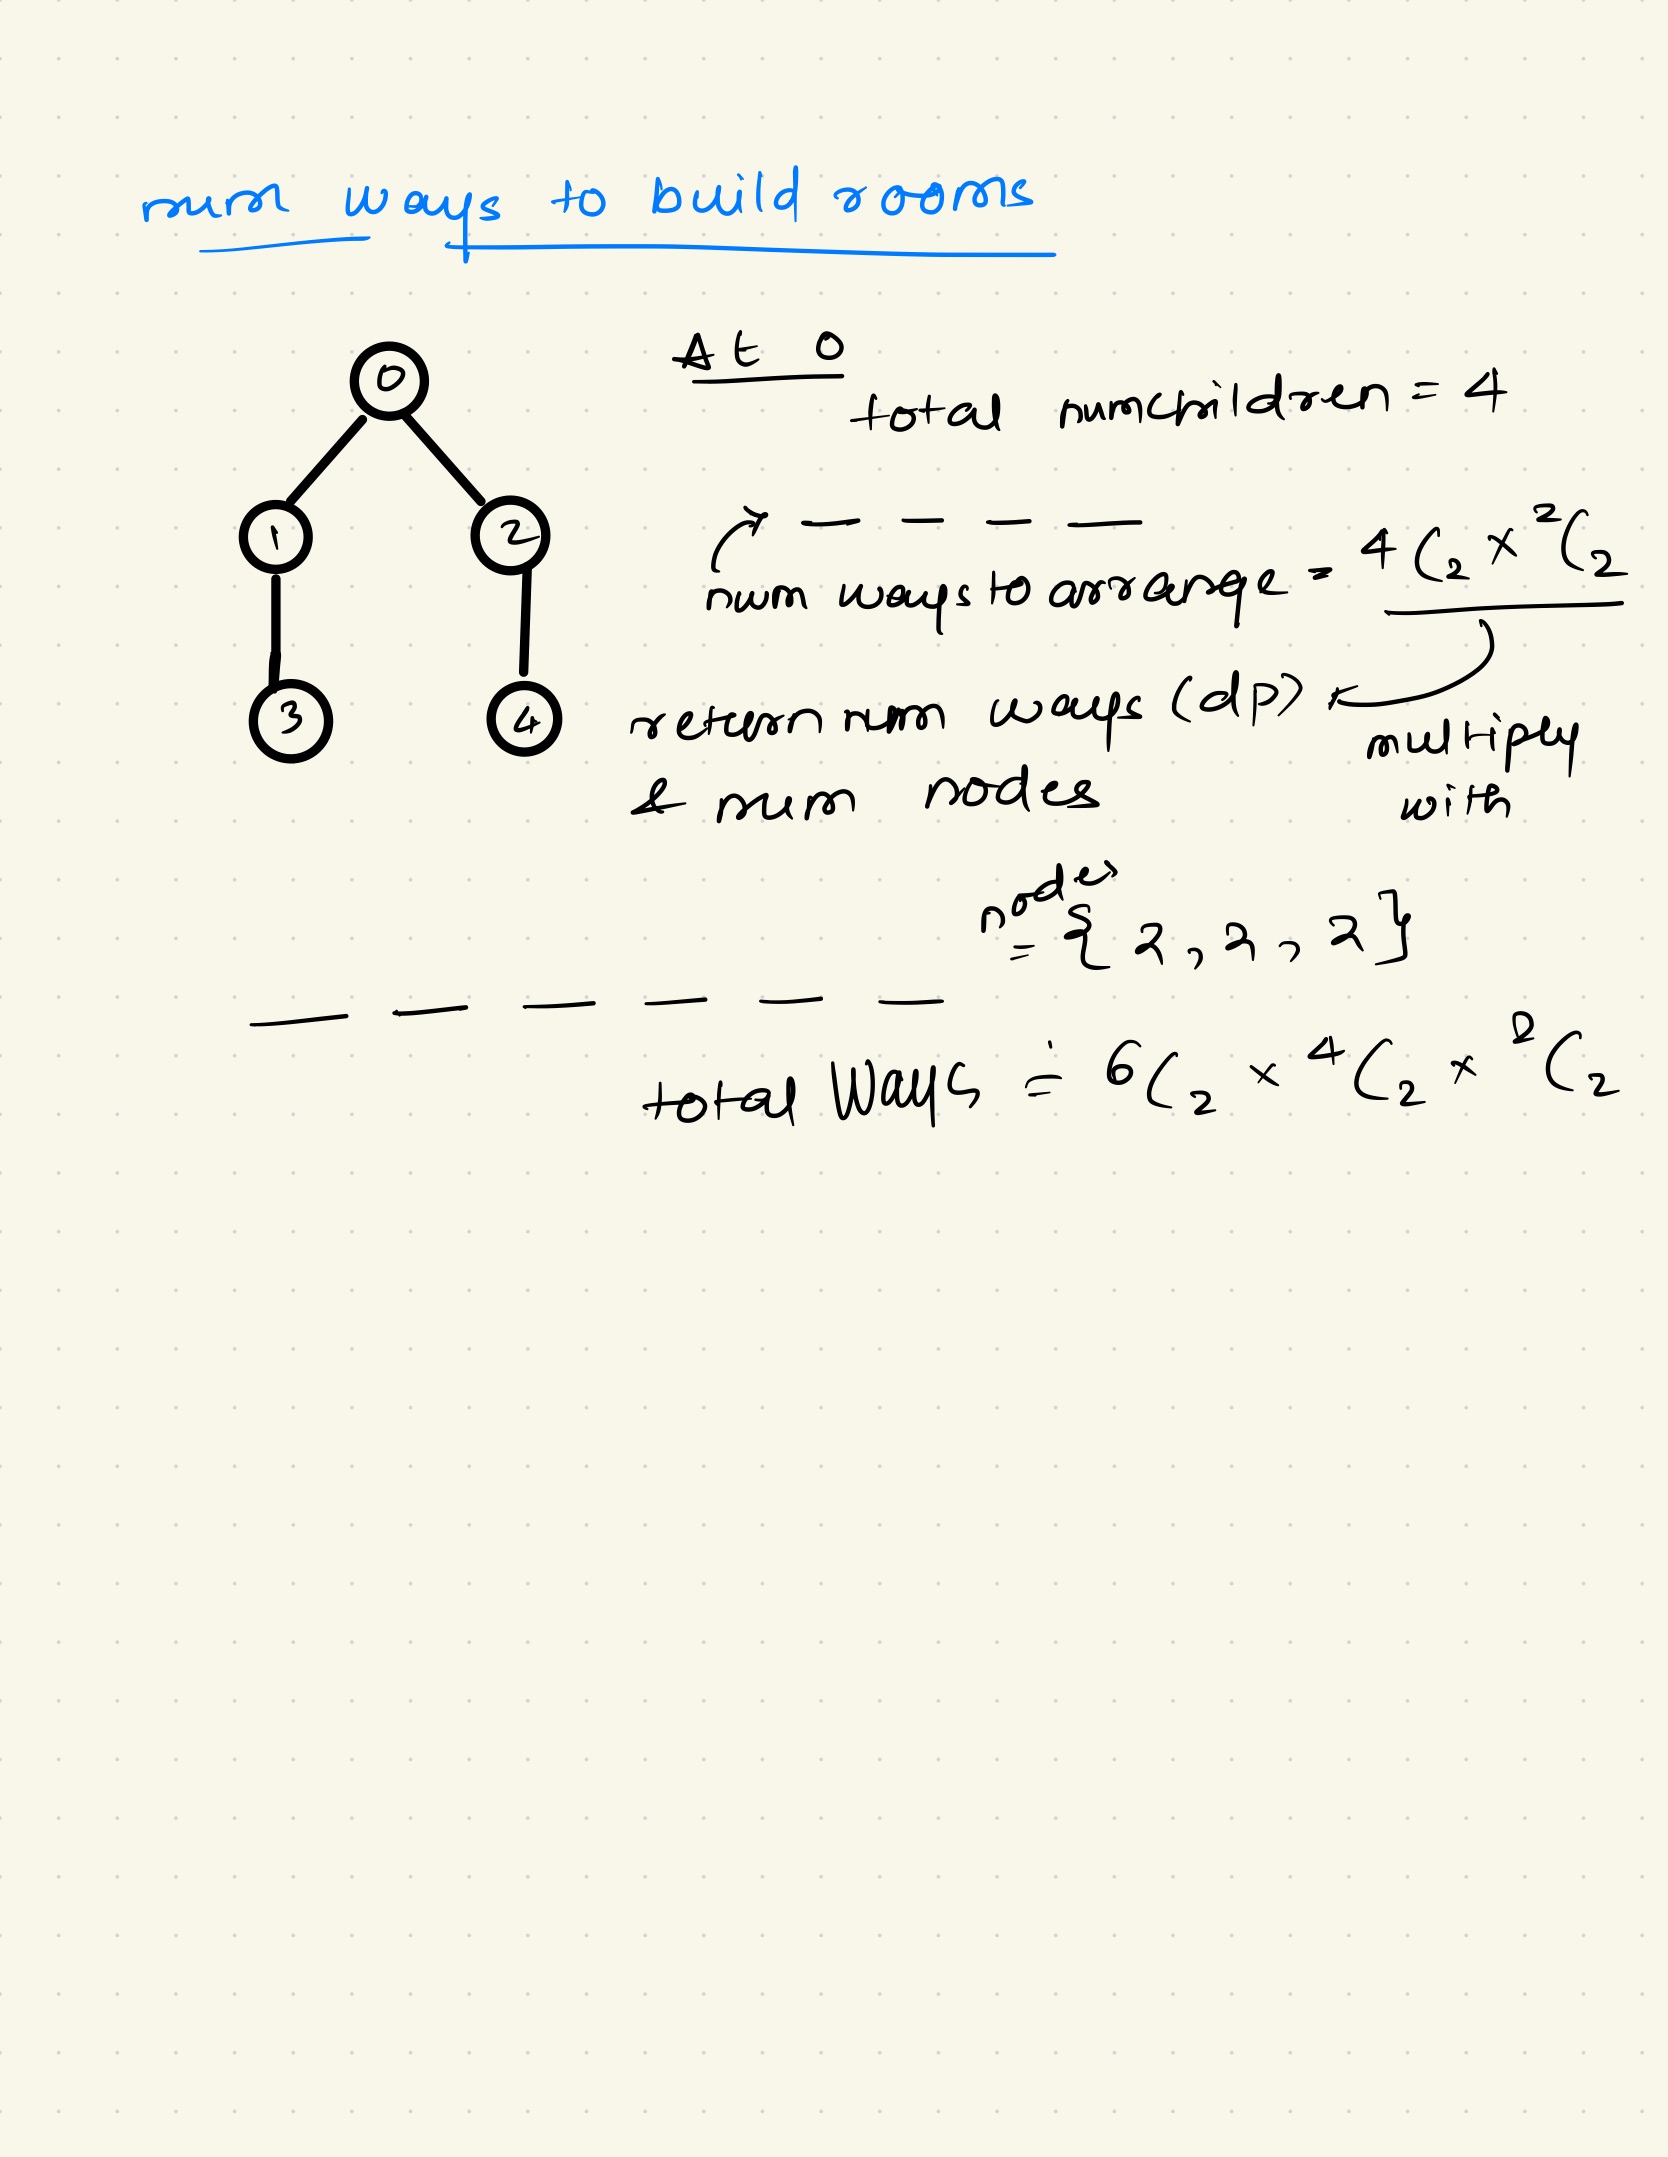 num ways to build rooms
At 0
0
total numchildren = 4
1 2
num ways to arrange = 4C2 × 2C2
3 4
return num ways (dp)
multiply
& num nodes
with
nodes
= {2, 2, 2}
total Ways = 6C2 × 4C2 × 2C2